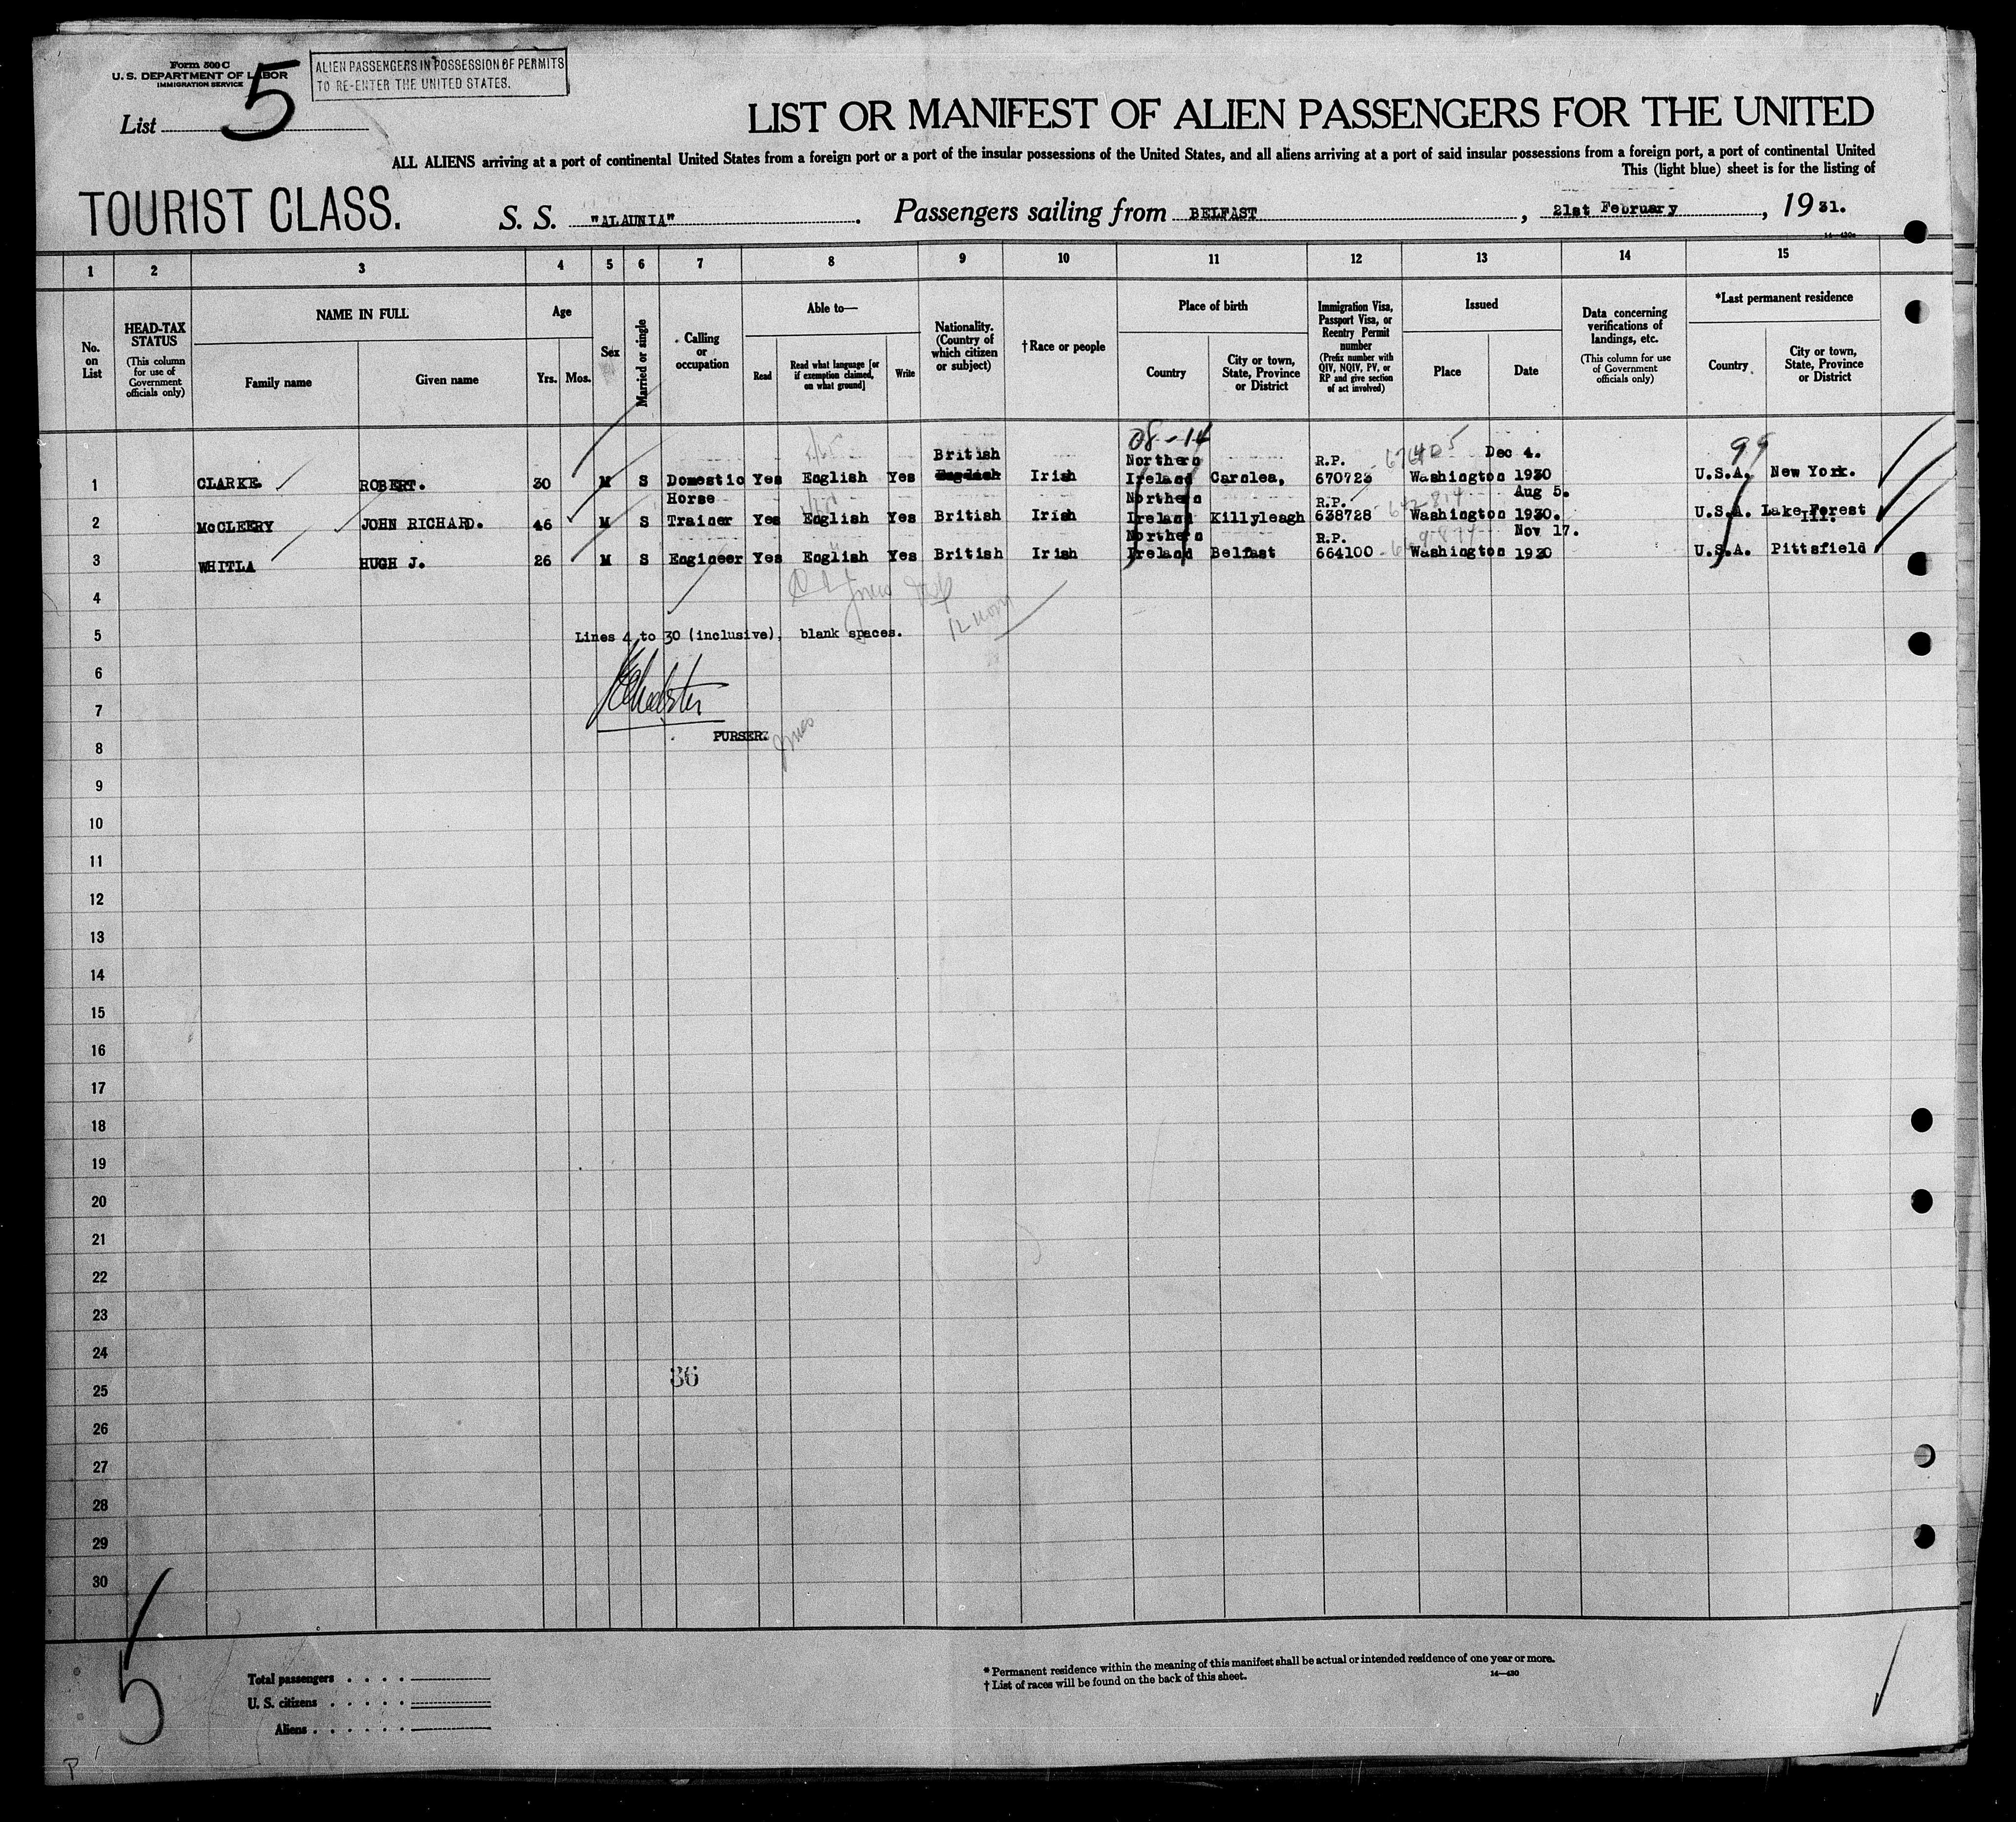 Form 500 C
U. S. DEPARTMENT OF LABOR
IMMIGRATION SERVICE
ALIEN PASSENGERS IN POSSESSION OF PERMITS
TO RE-ENTER THE UNITED STATES.
List 5
LIST OR MANIFEST OF ALIEN PASSENGERS FOR THE UNITED
ALL ALIENS arriving at a port of continental United States from a foreign port or a port of the insular possessions of the United States, and all aliens arriving at a port of said insular possessions from a foreign port, a port of continental United
This (light blue) sheet is for the listing of
TOURIST CLASS.
S. S. "ALAUNIA". Passengers sailing from BELFAST, 21st February, 1931.
14—430c
1 2 3 4 5 6 7 8 9 10 11 12 13 14 15
No. on List
HEAD-TAX STATUS (This column for use of Government officials only)
NAME IN FULL
Family name
Given name
Age
Yrs. Mos.
Sex
Married or single
Calling or occupation
Able to—
Read
Read what language [or if exemption claimed, on what ground]
Write
Nationality. (Country of which citizen or subject)
†Race or people
Place of birth
Country
City or town, State, Province or District
Immigration Visa, Passport Visa, or Reentry Permit number (Prefix number with QIV, NQIV, PV, or RP and give section of act involved)
Issued
Place
Date
Data concerning verifications of landings, etc. (This column for use of Government officials only)
*Last permanent residence
Country
City or town, State, Province or District
08-14
99
British Northern R.P. Dec 4.
1 CLARKE. ROBERT. 30 M S Domestic Yes English Yes English Irish Ireland Carnlea, 670723 Washington 1930 U.S.A. New York.
Horse Northern R.P. Aug 5.
2 McCLEERY JOHN RICHARD. 46 M S Trainer Yes English Yes British Irish Ireland Killyleagh 638728 Washington 1930. U.S.A. Lake Forest Ill.
Northern R.P. Nov 17.
3 WHITLA HUGH J. 26 M S Engineer Yes English Yes British Irish Ireland Belfast 664100 Washington 1930 U.S.A. Pittsfield
4
5 Lines 4 to 30 (inclusive), blank spaces.
6
7
PURSER.
8
9
10
11
12
13
14
15
16
17
18
19
20
21
22
23
24
36
25
26
27
28
29
30
5
Total passengers
U. S. citizens
Aliens
* Permanent residence within the meaning of this manifest shall be actual or intended residence of one year or more.
† List of races will be found on the back of this sheet.
14—430